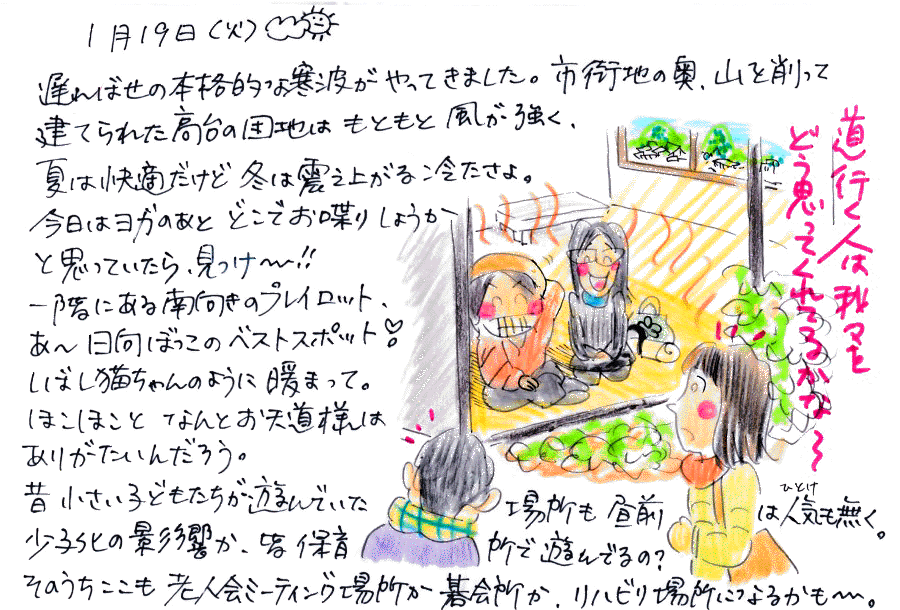 1月19日(火)
遅ればせの本格的な寒波がやってきました。市街地の奥、山を削って
建てられた高台の団地はもともと風が強く、
夏は快適だけど冬は震え上がる冷たさよ。
今日はヨガのあとどこでお喋りしようか
と思っていたら、見っけ〜!!
一階にある南向きのプレイロット、
あ〜日向ぼっこのベストスポット♡
しばし猫ちゃんのように暖まって。
ほこほことなんとお天道様は
ありがたいんだろう。
昔小さい子どもたちが遊んでいた場所も昼前は人気も無く。
ひとけ
少子化の影響か、皆保育所で遊んでるの?
そのうちここも老人会ミーティング場所か碁会所か、リハビリ場所になるかも〜。
道行く人は私を
どう思ってくれてるかな〜